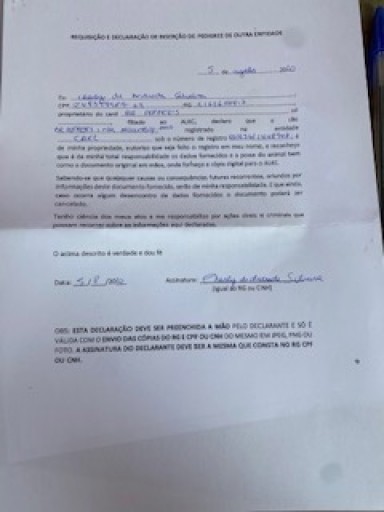 REQUISIÇÃO E DECLARAÇÃO DE INSERÇÃO DE PEDIGREE DE OUTRA ENTIDADE
5 de agosto
Eu de Silveira
CPF RG
proprietário do canil só
filiado ao declaro que o cão
registrado na entidade
sob o número de registro é
de minha propriedade, autorizo que seja feito o registro em meu nome, e reconheço
que é da minha total responsabilidade os dados fornecidos e a posse do animal bem
como o documento original em mãos, onde forneço a cópia digital para o
Sabendo-se que quaisquer causas ou consequências futuras recorrentes, oriundos por
informações deste documento fornecido, serão de minha responsabilidade. E que ainda,
caso ocorra algum desencontro de dados fornecidos o documento poderá ser
cancelado.
Tenho ciência dos meus atos e me responsabilizo por ações cíveis e criminais que
possam recorrer sobre as informações aqui declaradas.
O acima descrito é verdade e dou fé
Data: 5/8 Assinatura: Silveira
(igual do RG ou CNH)
OBS: ESTA DECLARAÇÃO DEVE SER PREENCHIDA A MÃO PELO DECLARANTE E SÓ É
VÁLIDA COM O ENVIO DAS CÓPIAS DO RG E CPF OU CNH DO MESMO EM JPEG, PNG OU
FOTO. A ASSINATURA DO DECLARANTE DEVE SER A MESMA QUE CONSTA NO RG CPF
OU CNH.